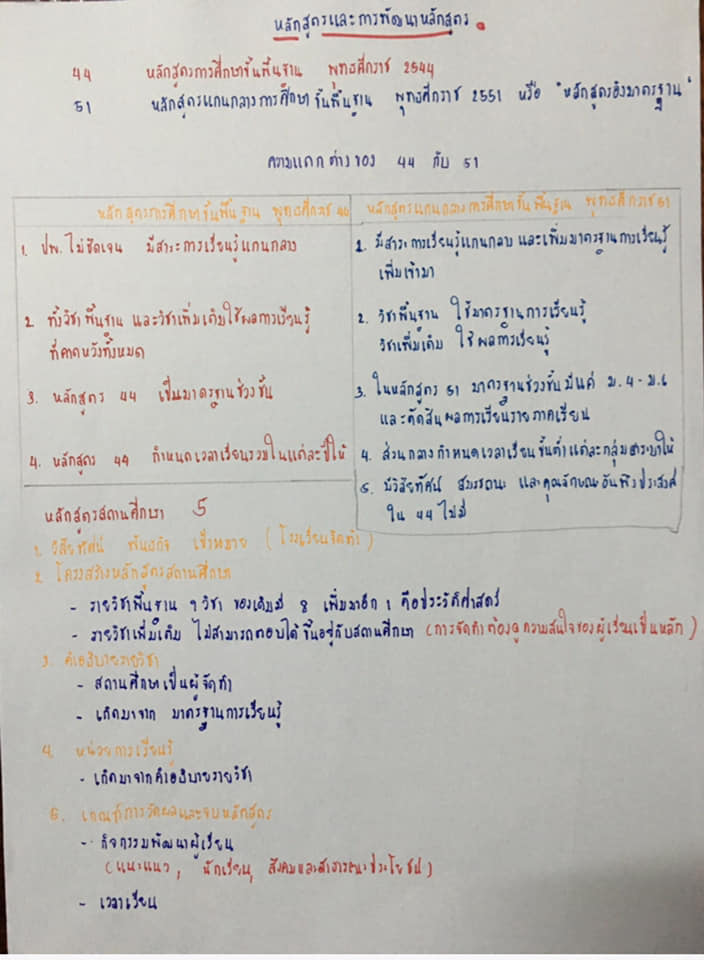 หลักสูตรและการพัฒนาหลักสูตร
44 หลักสูตรการศึกษาขั้นพื้นฐาน พุทธศักราช 2544
51 หลักสูตรแกนกลางการศึกษาขั้นพื้นฐาน พุทธศักราช 2551 หรือ "หลักสูตรอิงมาตรฐาน"
ความแตกต่างของ 44 กับ 51
หลักสูตรการศึกษาขั้นพื้นฐาน พุทธศักราช 44
1. ปพ. ไม่ชัดเจน มีสาระการเรียนรู้แกนกลาง
2. ทั้งวิชาพื้นฐาน และวิชาเพิ่มเติมใช้ผลการเรียนรู้
ที่คาดหวังทั้งหมด
3. หลักสูตร 44 เป็นมาตรฐานช่วงชั้น
4. หลักสูตร 44 กำหนดเวลาเรียนรวมในแต่ละปีให้
หลักสูตรแกนกลางการศึกษาขั้นพื้นฐาน พุทธศักราช 51
1. มีสาระการเรียนรู้แกนกลาง และเพิ่มมาตรฐานการเรียนรู้
เพิ่มเข้ามา
2. วิชาพื้นฐาน ใช้มาตรฐานการเรียนรู้
วิชาเพิ่มเติม ใช้ผลการเรียนรู้
3. ในหลักสูตร 51 มาตรฐานช่วงชั้นมีแค่ ม.4-ม.6
และตัดสินผลการเรียนรายภาคเรียน
4. ส่วนกลางกำหนดเวลาเรียนขั้นต่ำแต่ละกลุ่มสาระมาให้
5. มีวิสัยทัศน์ สมรรถนะ และคุณลักษณะอันพึงประสงค์
ใน 44 ไม่มี
หลักสูตรสถานศึกษา 5
1. วิสัยทัศน์ พันธกิจ เป้าหมาย (โรงเรียนจัดทำ)
2. โครงสร้างหลักสูตรสถานศึกษา
- รายวิชาพื้นฐาน 9 วิชา ของเดิมมี 8 เพิ่มมาอีก 1 คือประวัติศาสตร์
- รายวิชาเพิ่มเติม ไม่สามารถตอบได้ ขึ้นอยู่กับสถานศึกษา (การจัดทำต้องดูความสนใจของผู้เรียนเป็นหลัก)
3. คำอธิบายรายวิชา
- สถานศึกษาเป็นผู้จัดทำ
- เกิดมาจาก มาตรฐานการเรียนรู้
4. หน่วยการเรียนรู้
- เกิดมาจากคำอธิบายรายวิชา
5. เกณฑ์การวัดผลและจบหลักสูตร
- กิจกรรมพัฒนาผู้เรียน
(แนะแนว, นักเรียน, สังคมและสาธารณะประโยชน์)
- เวลาเรียน